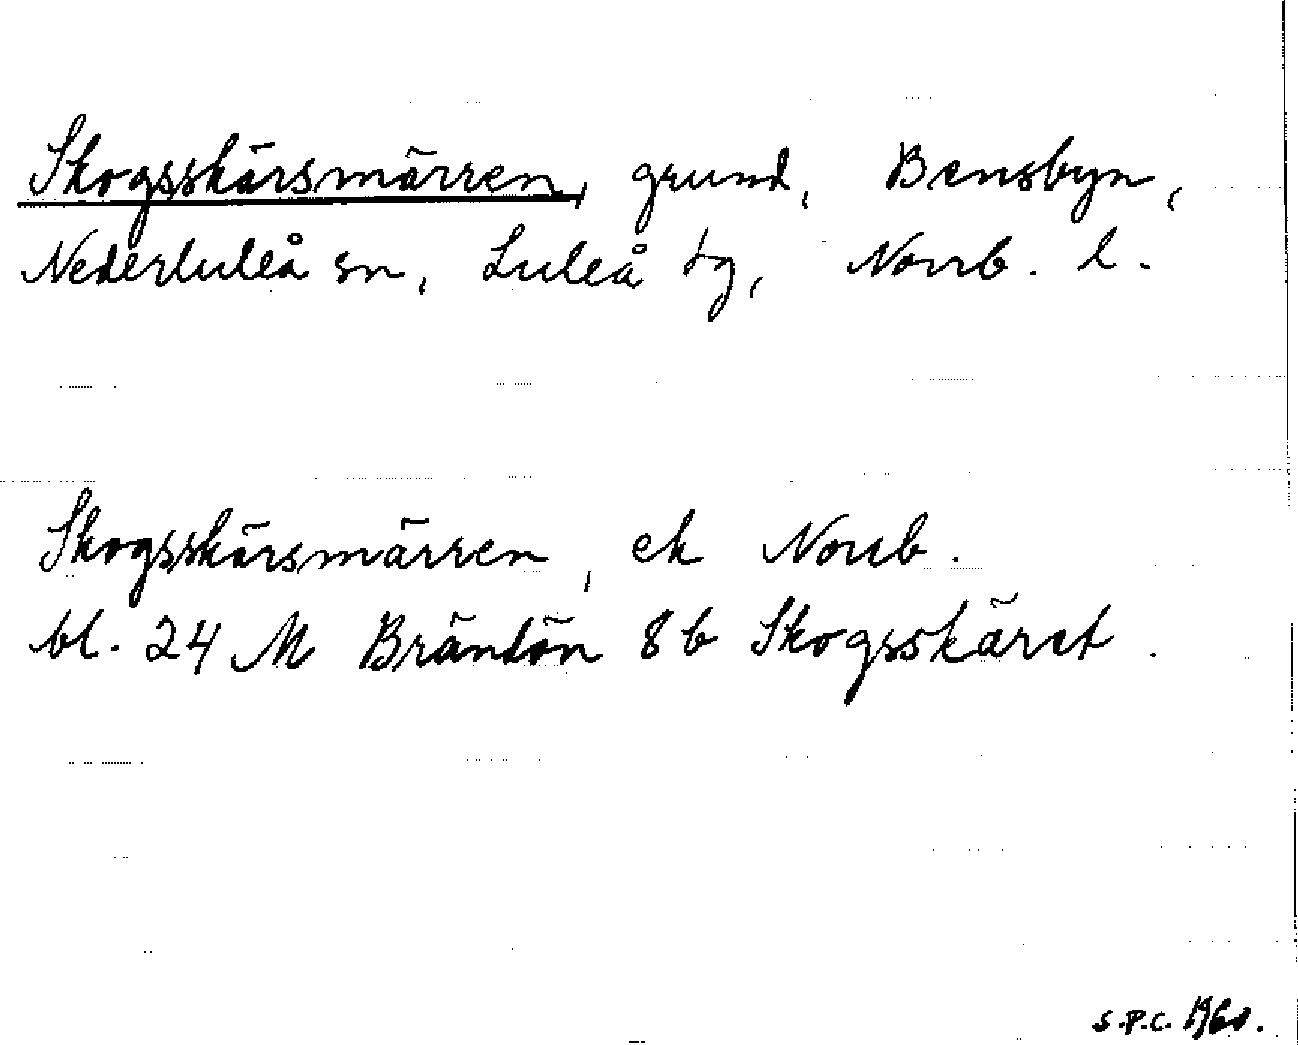 Skogsskärsmärren, grund, Bensbyn,
Nederluleå sn, Luleå tg, Norrb. l.
Skogsskärsmärren, ek Norrb.
bl. 24 M Brändön 8 b Skogsskäret.
S.P.C. 1960.